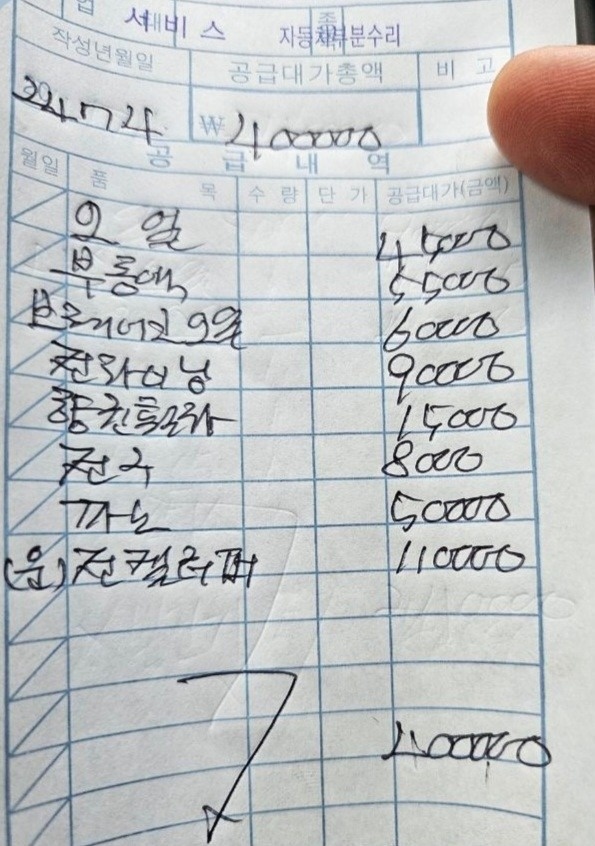 업 서비스 종 자동차부분수리
작성년월일 공급대가총액 비고
₩ 400000
공급내역
월일 품목 수량 단가 공급대가(금액)
오일 45000
부동액 55000
브레이크오일 60000
전라이닝 90000
15000
전구 8000
50000
(운)전켈리퍼 110000
400000